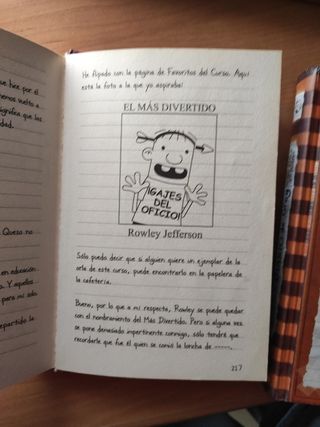 ue hice por él
menos vuelto a
significa que las
dad.
Queso no
en educación.
a. Y aquellos
pero mi sido
repartido la
He flipado con la página de Favoritos del Curso. Aquí
está la foto a la que yo aspiraba:
EL MÁS DIVERTIDO
¡GAJES
DEL
OFICIO!
Rowley Jefferson
Sólo puedo decir que si alguien quiere un ejemplar de la
orla de este curso, puede encontrarlo en la papelera de
la cafetería.
Bueno, por lo que a mí respecta, Rowley se puede quedar
con el nombramiento del Más Divertido. Pero si alguna vez
se pone demasiado impertinente conmigo, sólo tendré que
recordarle que fue él quien se comió la loncha de -----.
217